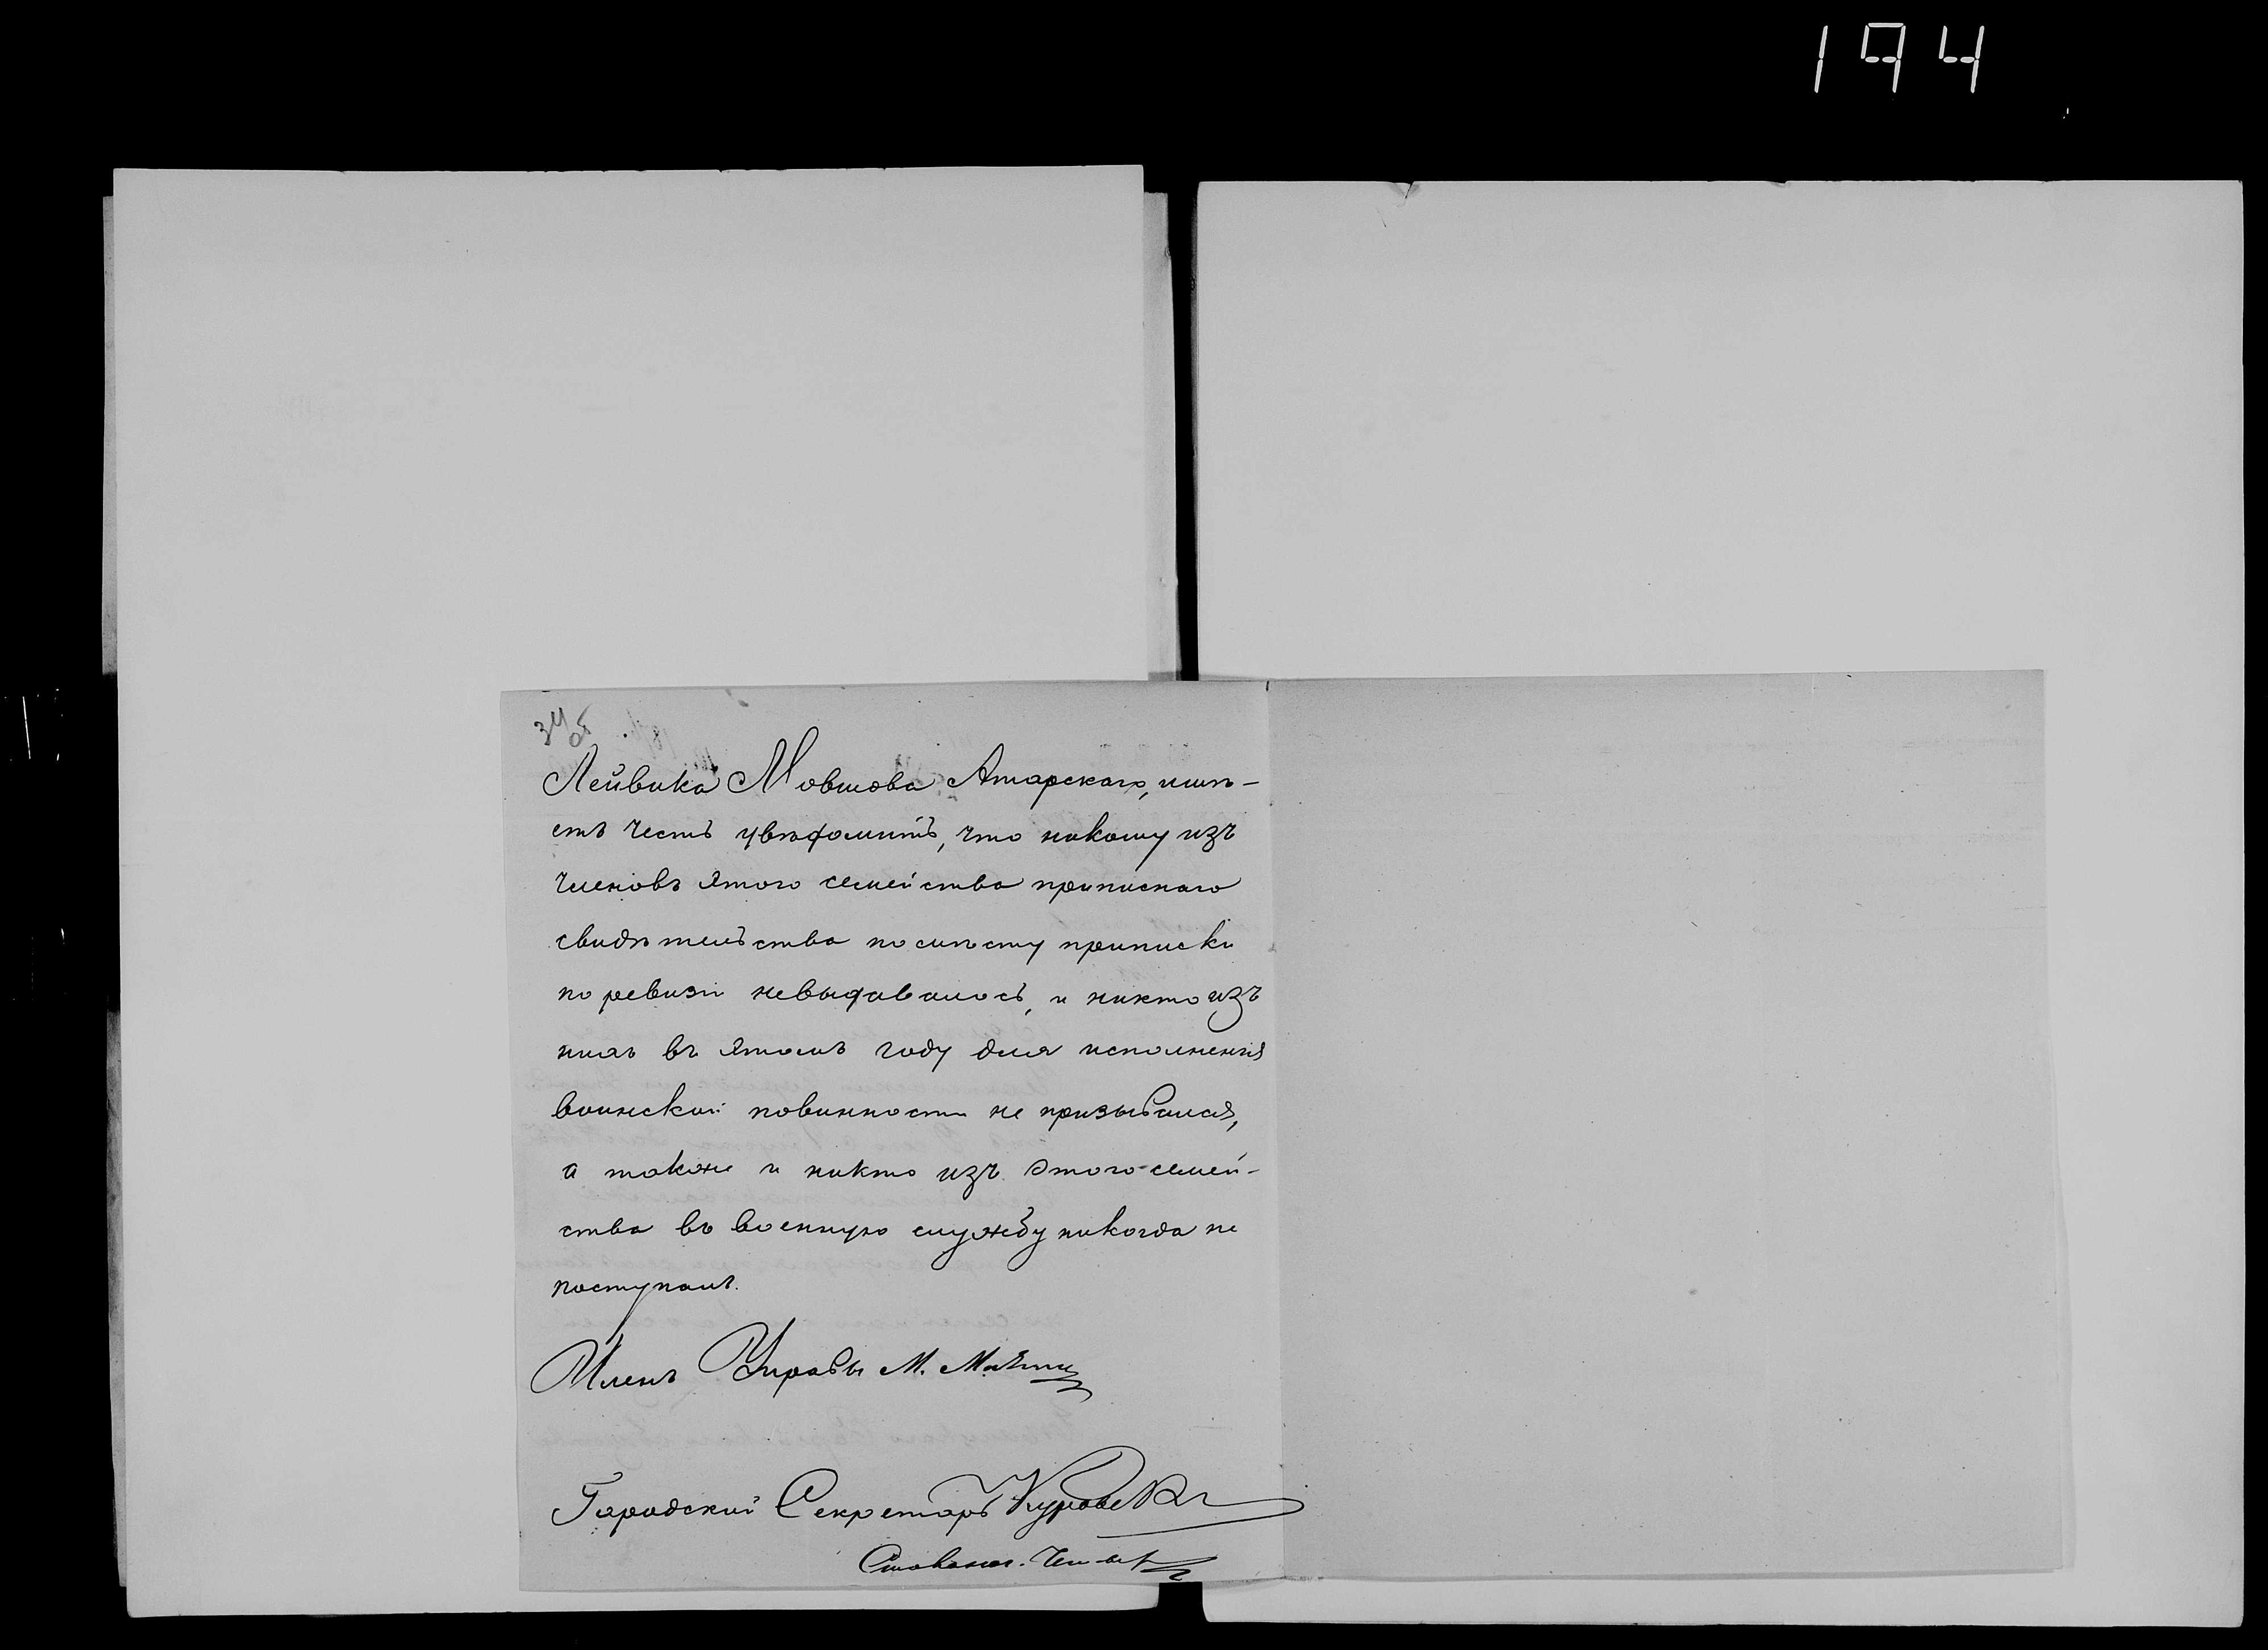 194
34
об
Лейвика Мовшова Атарскаго, имѣ-
етъ честь увѣдомить, что никому изъ
членовъ этого семейства приписнаго
свидѣтельства по мѣсту приписки
по ревизіи невыдавалось, и никто изъ
нихъ въ этомъ году для исполненія
воинской повинности не призывался,
а также и никто изъ этого семей-
ства въ военную службу никогда не
поступалъ.
Членъ Управы М.
Городский Секретарь